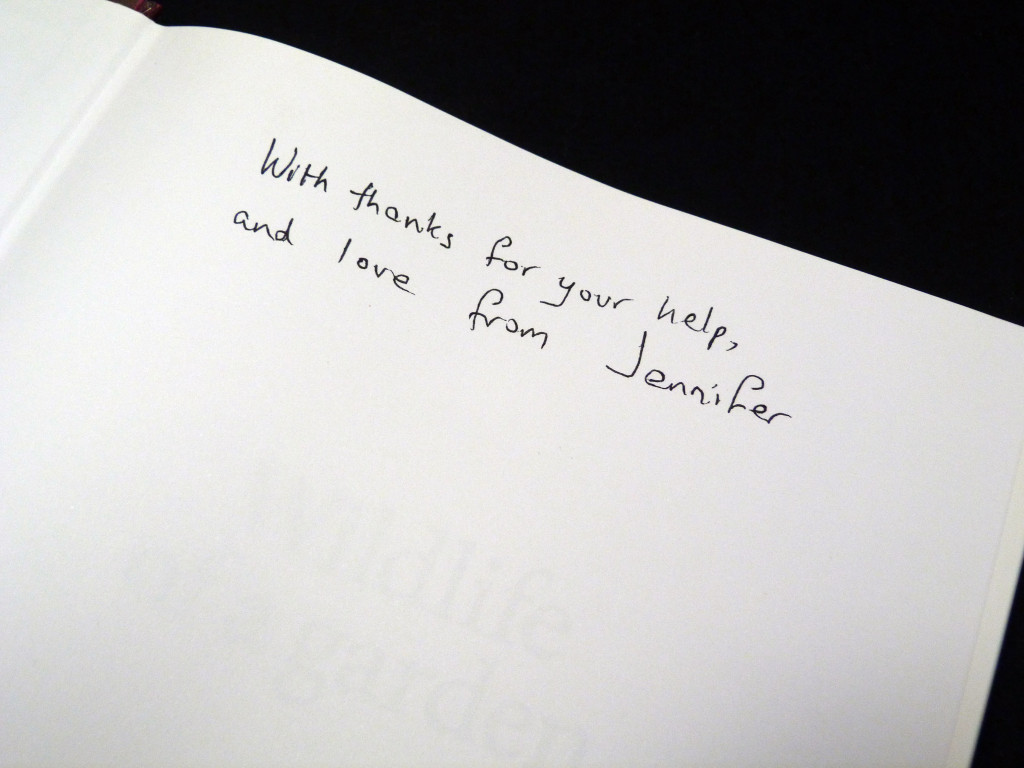 With thanks for your help,
and love from Jennifer
Wildlife
of a garden